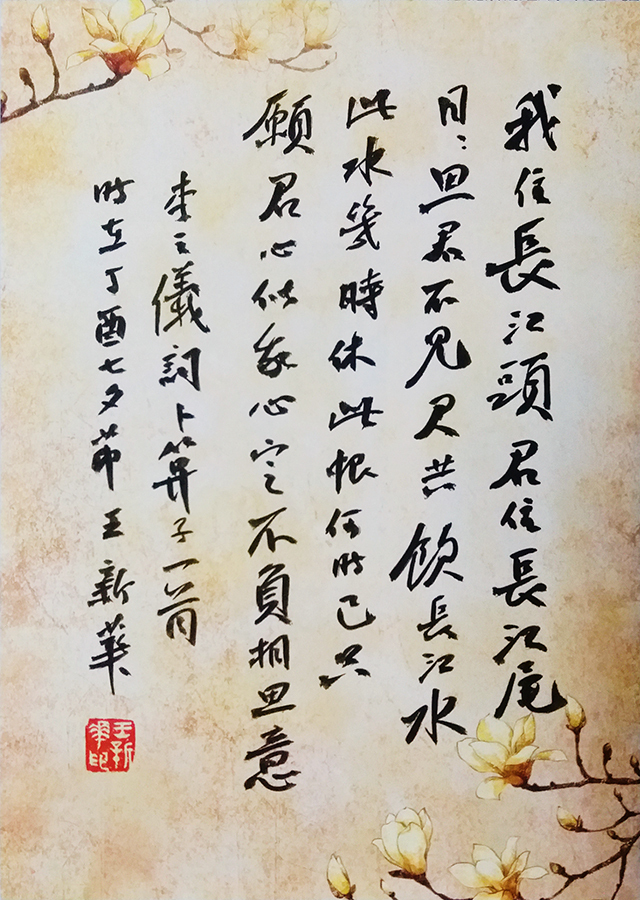 我住長江頭君住長江尾
日〻思君不見君共飲長江水
此水幾時休此恨何时已只
願君心似我心定不負相思意
李之儀詞卜算子一首
时在丁酉七夕节王新華
王新華印